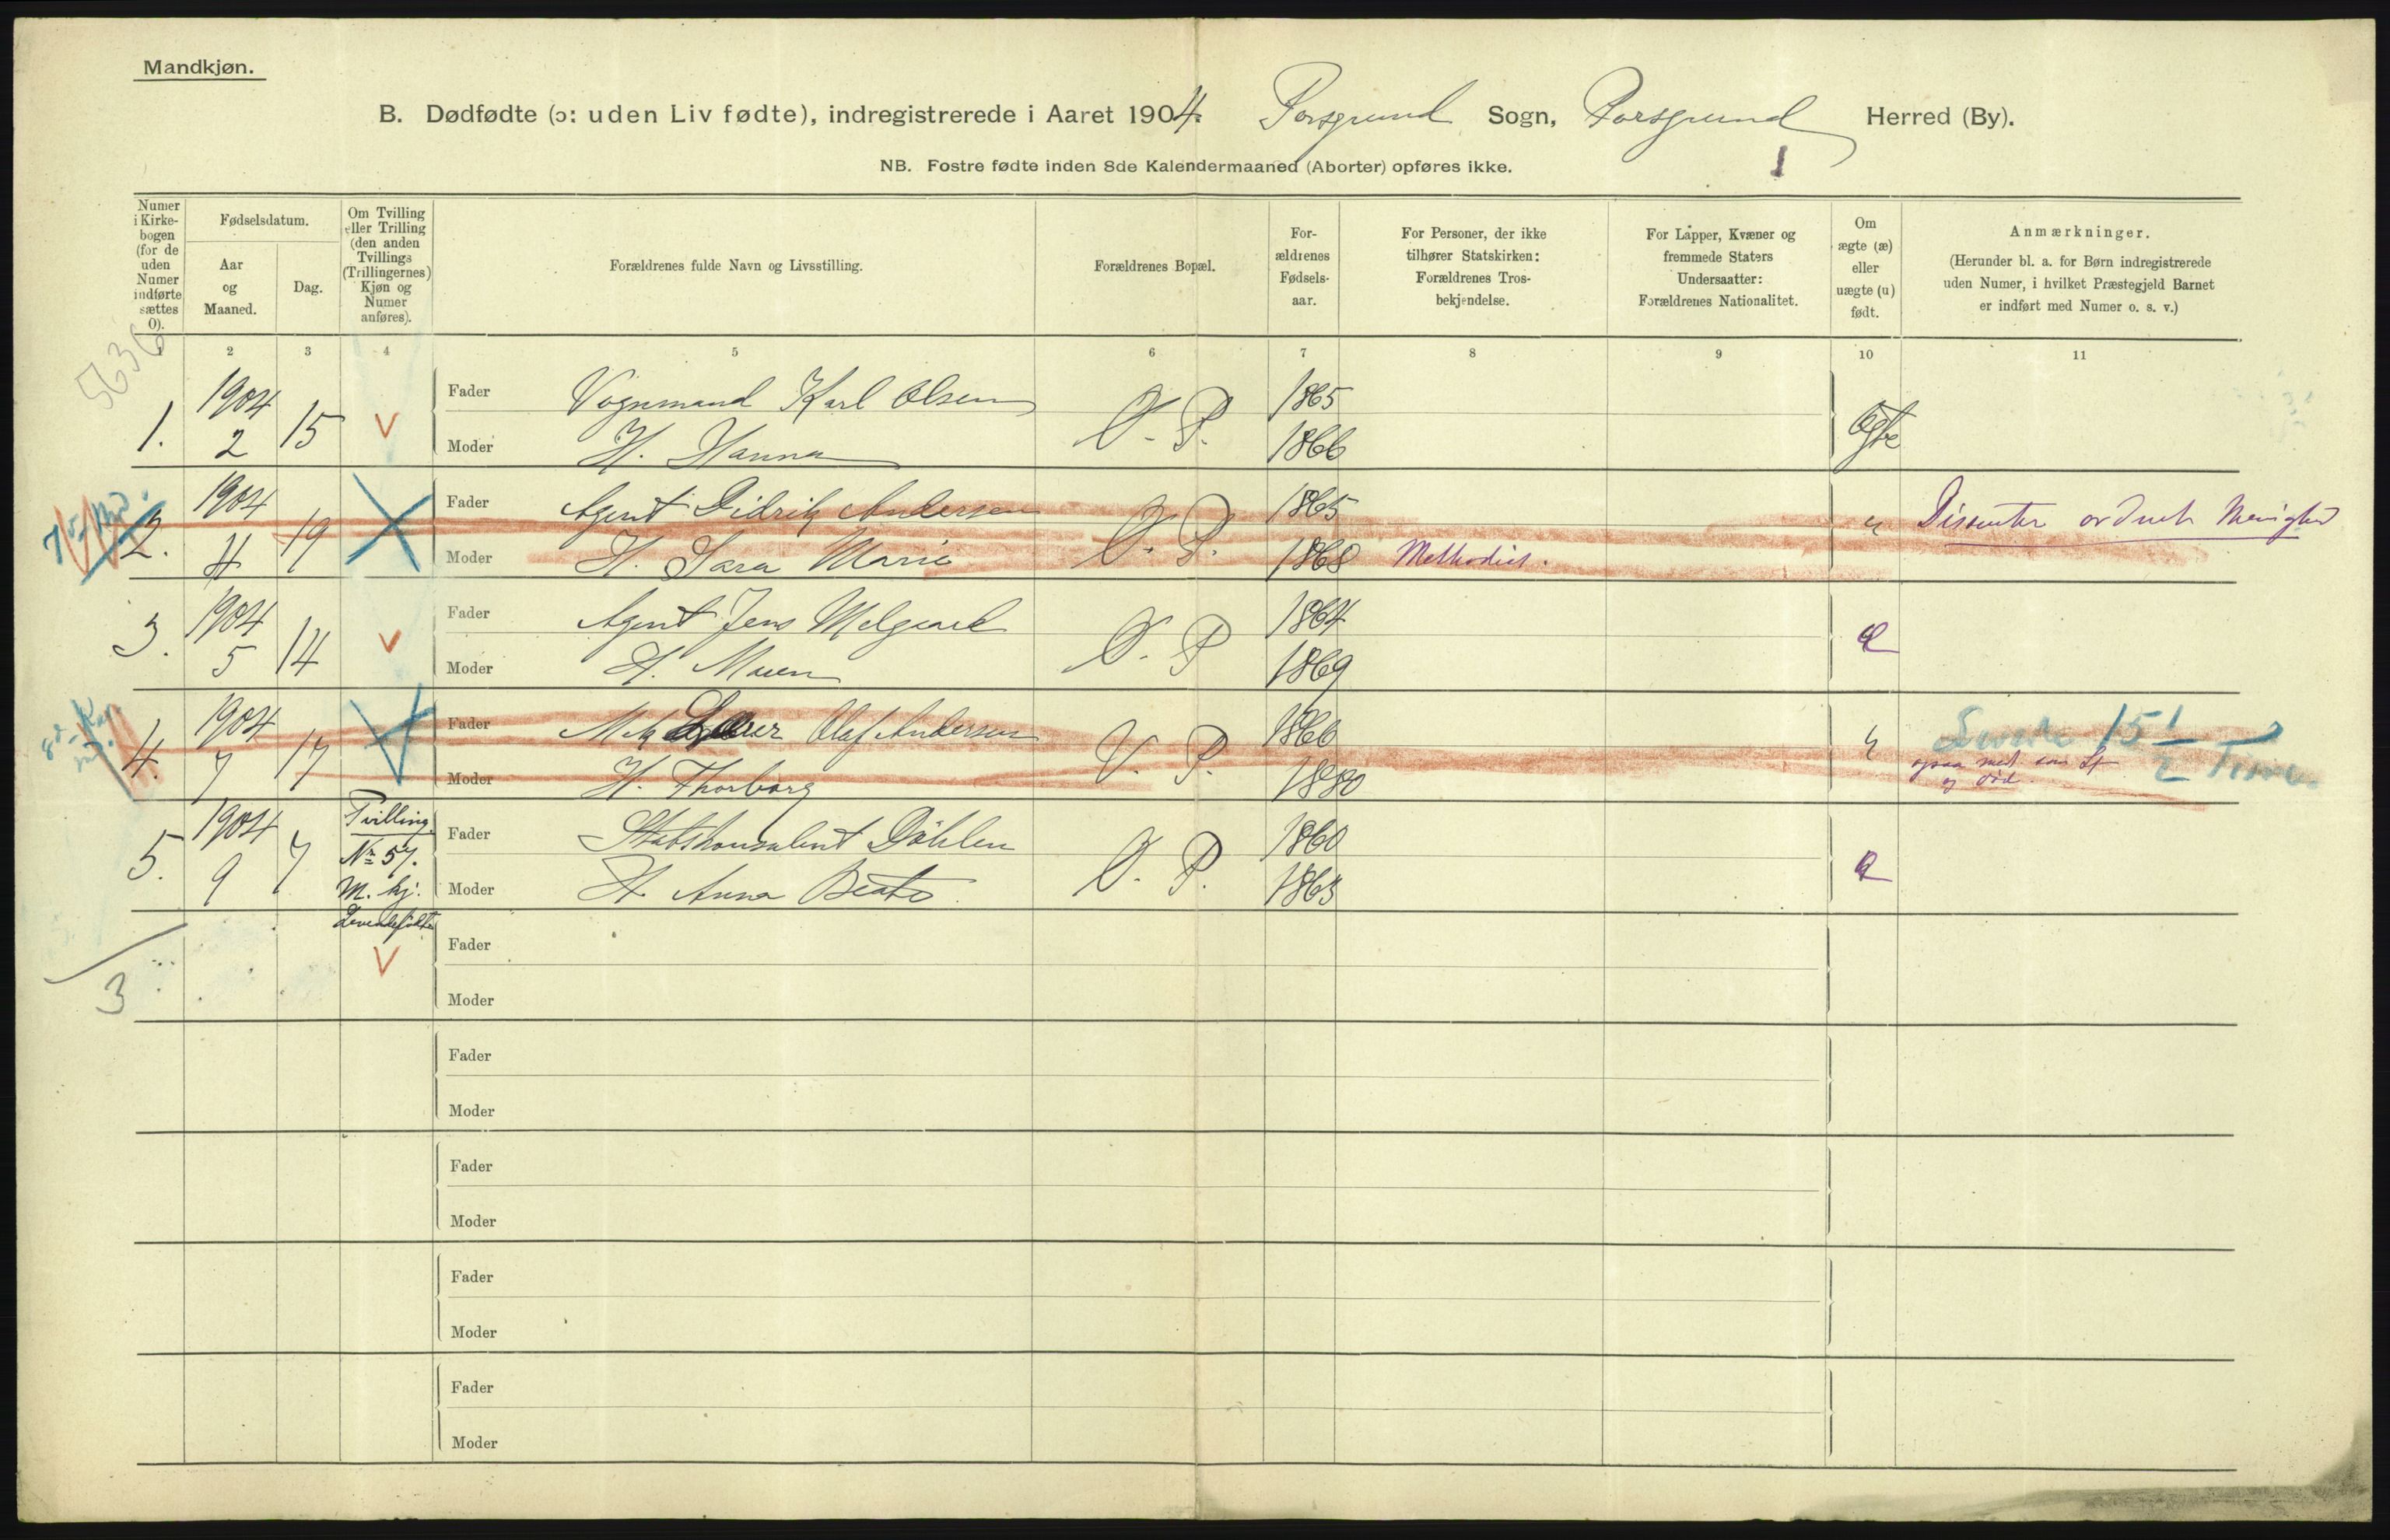 Mandkjøn.
B. Dødfødte (ɔ: uden Liv fødte), indregistrerede i Aaret 1904. Porsgrund Sogn, Porsgrund Herred (By).
NB. Fostre fødte inden 8de Kalendermaaned (Aborter) opføres ikke.
1
Numer i Kirkebogen (for de uden Numer indførte sættes 0).
Fødselsdatum.
Aar og Maaned.
Dag.
Om Tvilling eller Trilling (den anden Tvillings (Trillingernes) Kjøn og Numer anføres).
Forældrenes fulde Navn og Livsstilling.
Forældrenes Bopæl.
Forældrenes Fødselsaar.
For Personer, der ikke tilhører Statskirken: Forældrenes Trosbekjendelse.
For Lapper, Kvæner og fremmede Staters Undersaatter: Forældrenes Nationalitet.
Om ægte (æ) eller uægte (u) født.
Anmærkninger.
(Herunder bl. a. for Børn indregistrerede uden Numer, i hvilket Præstegjeld Barnet er indført med Numer o. s. v.)
5636
1 2 3 4 5 6 7 8 9 10 11
1. 1904 2 15 V
Fader Vognmand Karl Olsen V. P. 1865 Ægte
Moder H. Hanna 1866
2. 1904 4 19
Fader Agent Didrik Andersen V. P. 1865 " Dissenter ordnet Menighed
Moder H. Sara Marie 1868 Methodist.
3. 1904 5 14 V
Fader Agent Jens Melgaard V. P. 1864 Æ
Moder H. Maren 1869
4. 1904 7 17
Fader Olaf Andersen V. P. 1866 " Levede 15 1/2 Time
Moder H. Thorborg 1880 ogsaa med som og død.
5. 1904 9 7 Tvilling
Nr 57.
M. kj.
Levendefødte
V
Fader Dählen V. P. 1860 Æ
Moder H. Anna Beate 1863
3
Fader
Moder
Fader
Moder
Fader
Moder
Fader
Moder
Fader
Moder